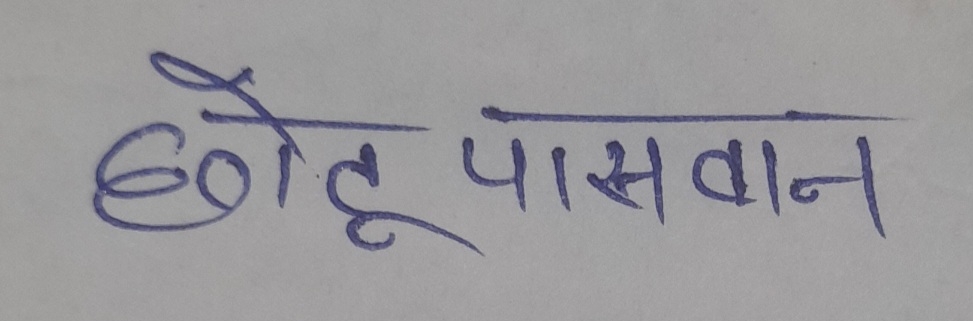 छोटू पासवान